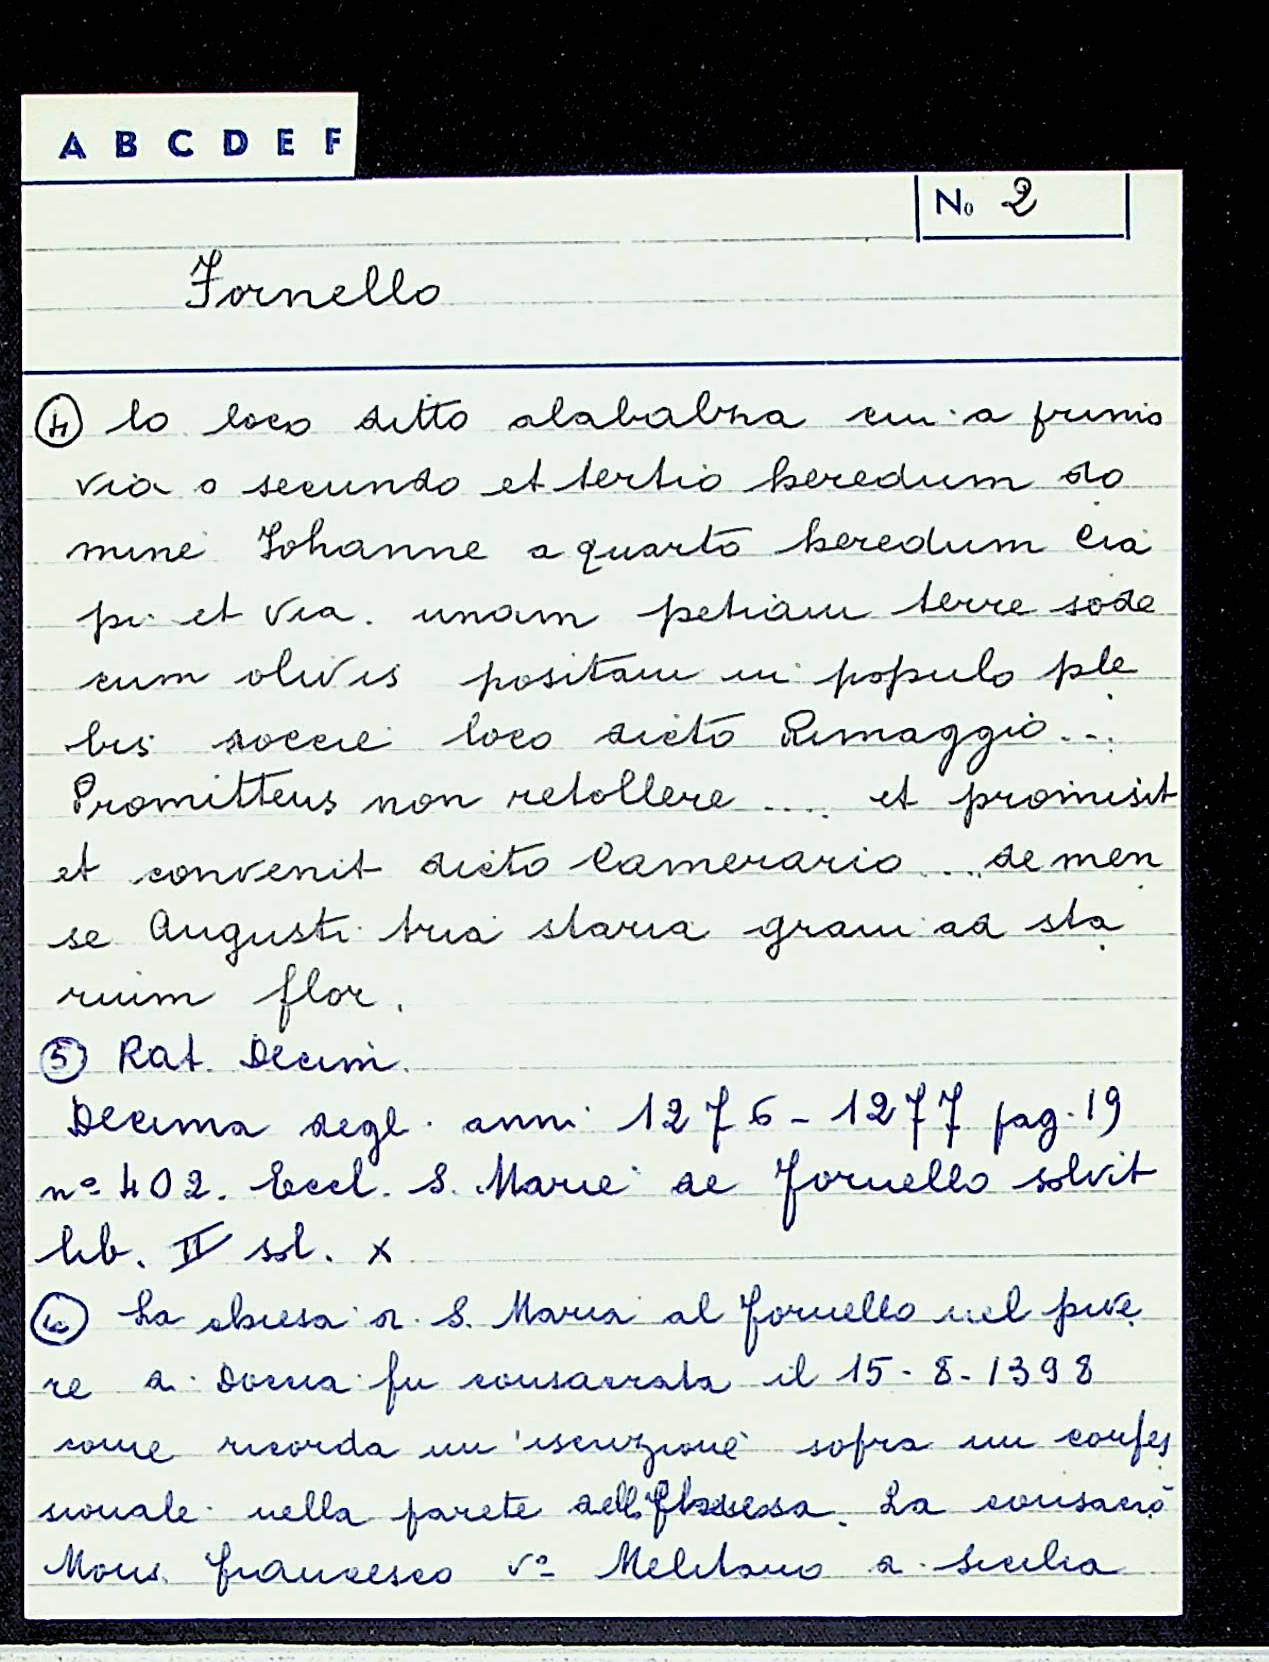 A B C D E F
No 2
Fornello
④ lo loco ditto alabalza cui a primo
via a secundo et tertio heredum do
mine Johanne a quarto heredum Cia
pi et via. unam petiam terre sode
cum olivis positam in populo ple
bis doccie loco dicto Rimaggio...
Promittens non retollere .... et promisit
et convenit dicto Camerario ... de men
se Augusti tria staria grani ad sta
rium flor.
⑤ Rat. Decim.
Decima degli anni 1276-1277 pag. 19
nº 402. Eccl. S. Marie de Fornello solvit
lib. II sol. x
La chiesa di S. Maria al Fornello nel pive
re di Doccia fu consacrata il 15-8-1398
come ricorda un'iscrizione sopra un confes
sionale nella parete della chiesa. La consacrò
Mons. Francesco vº Melitano di Sicilia